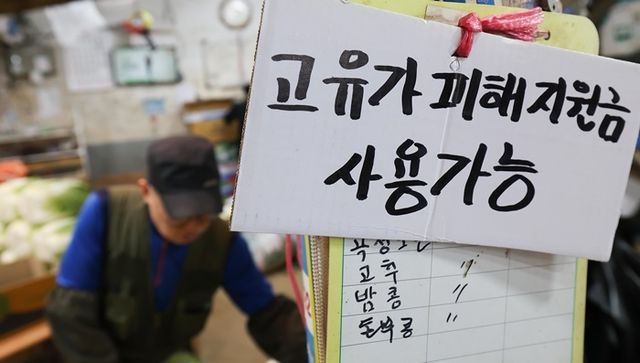 고유가 피해지원금
사용가능
고추 "
밤콩 "
"